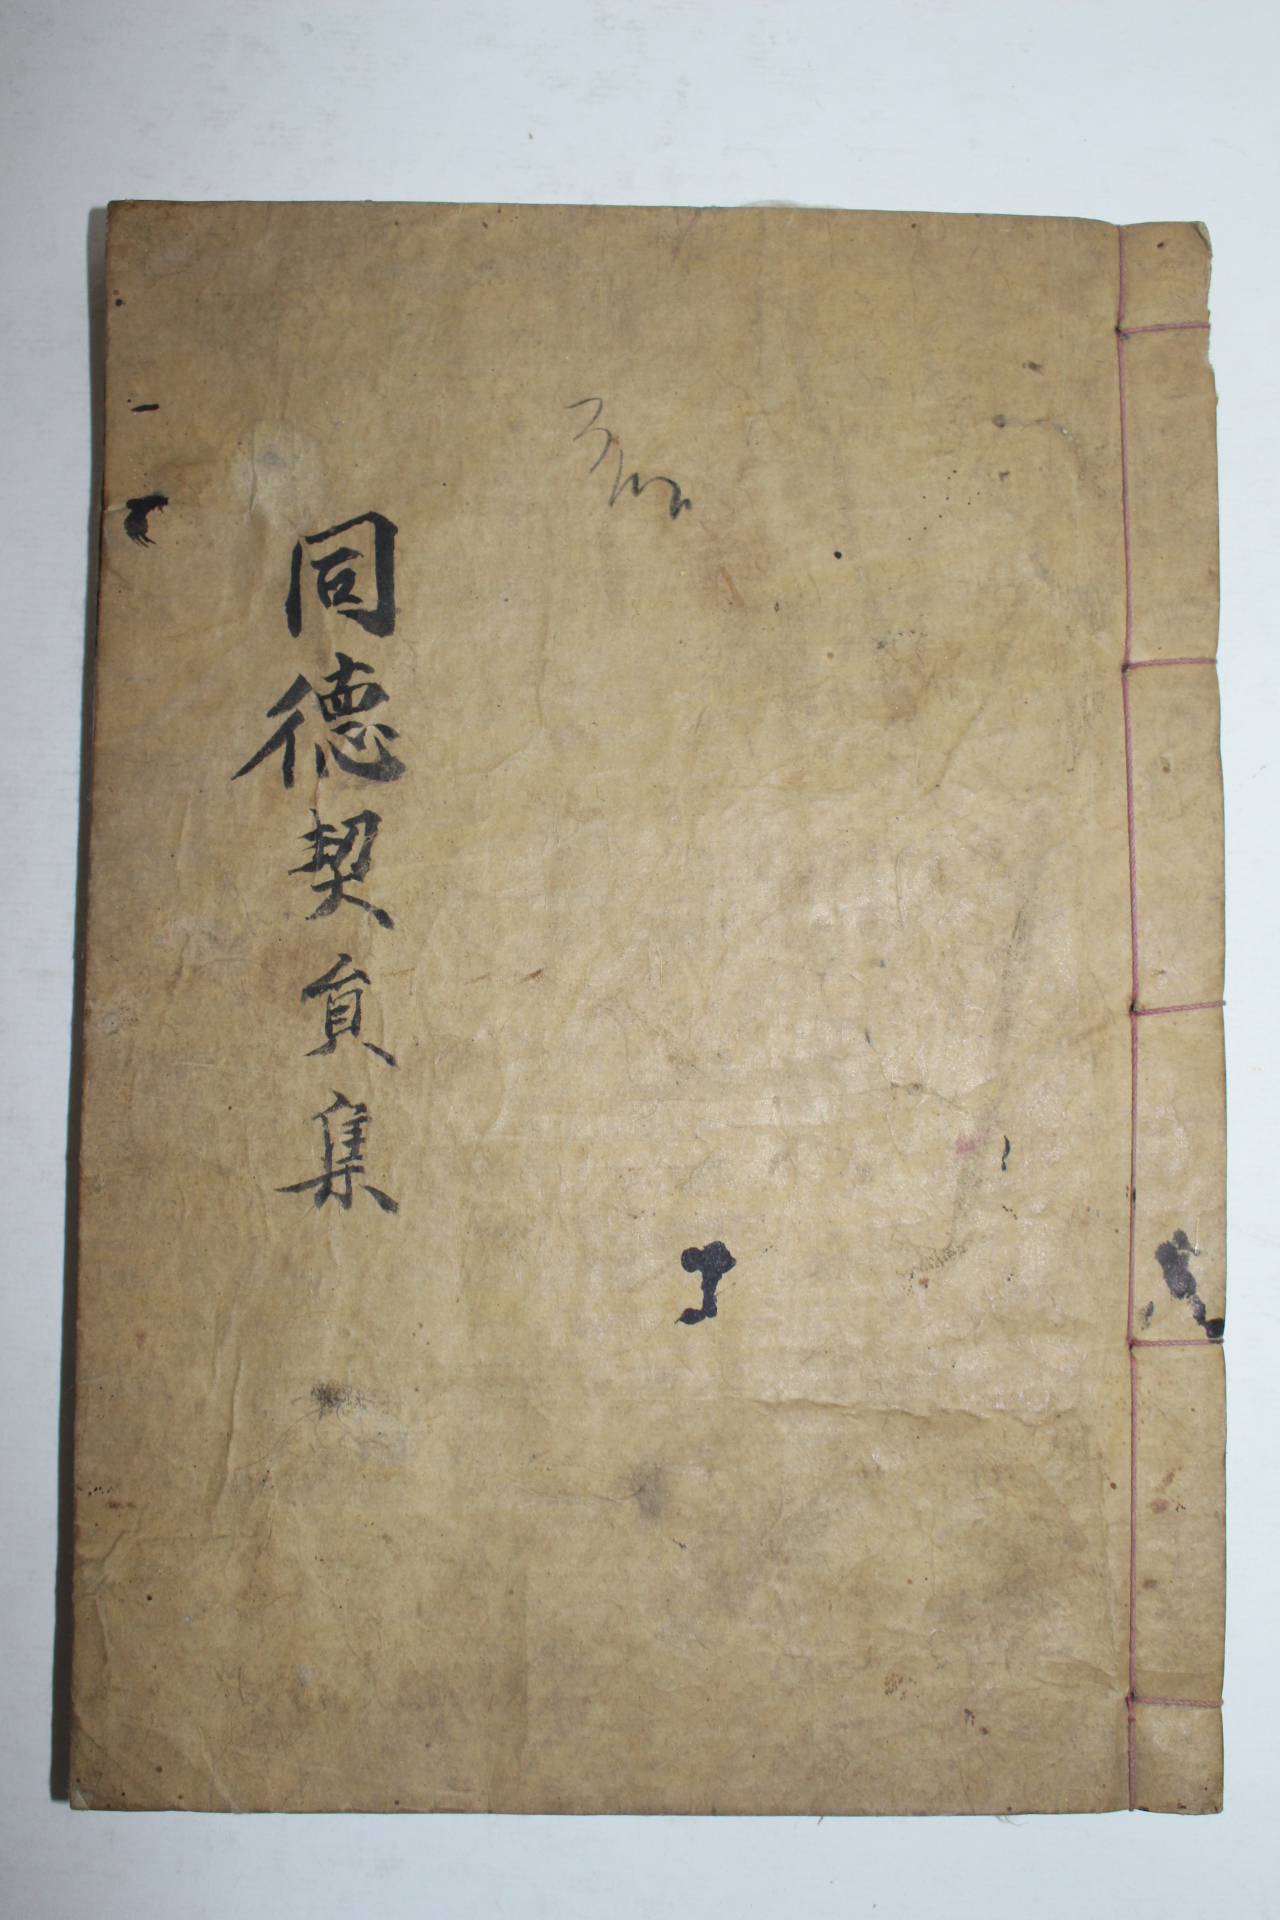 同德契員集